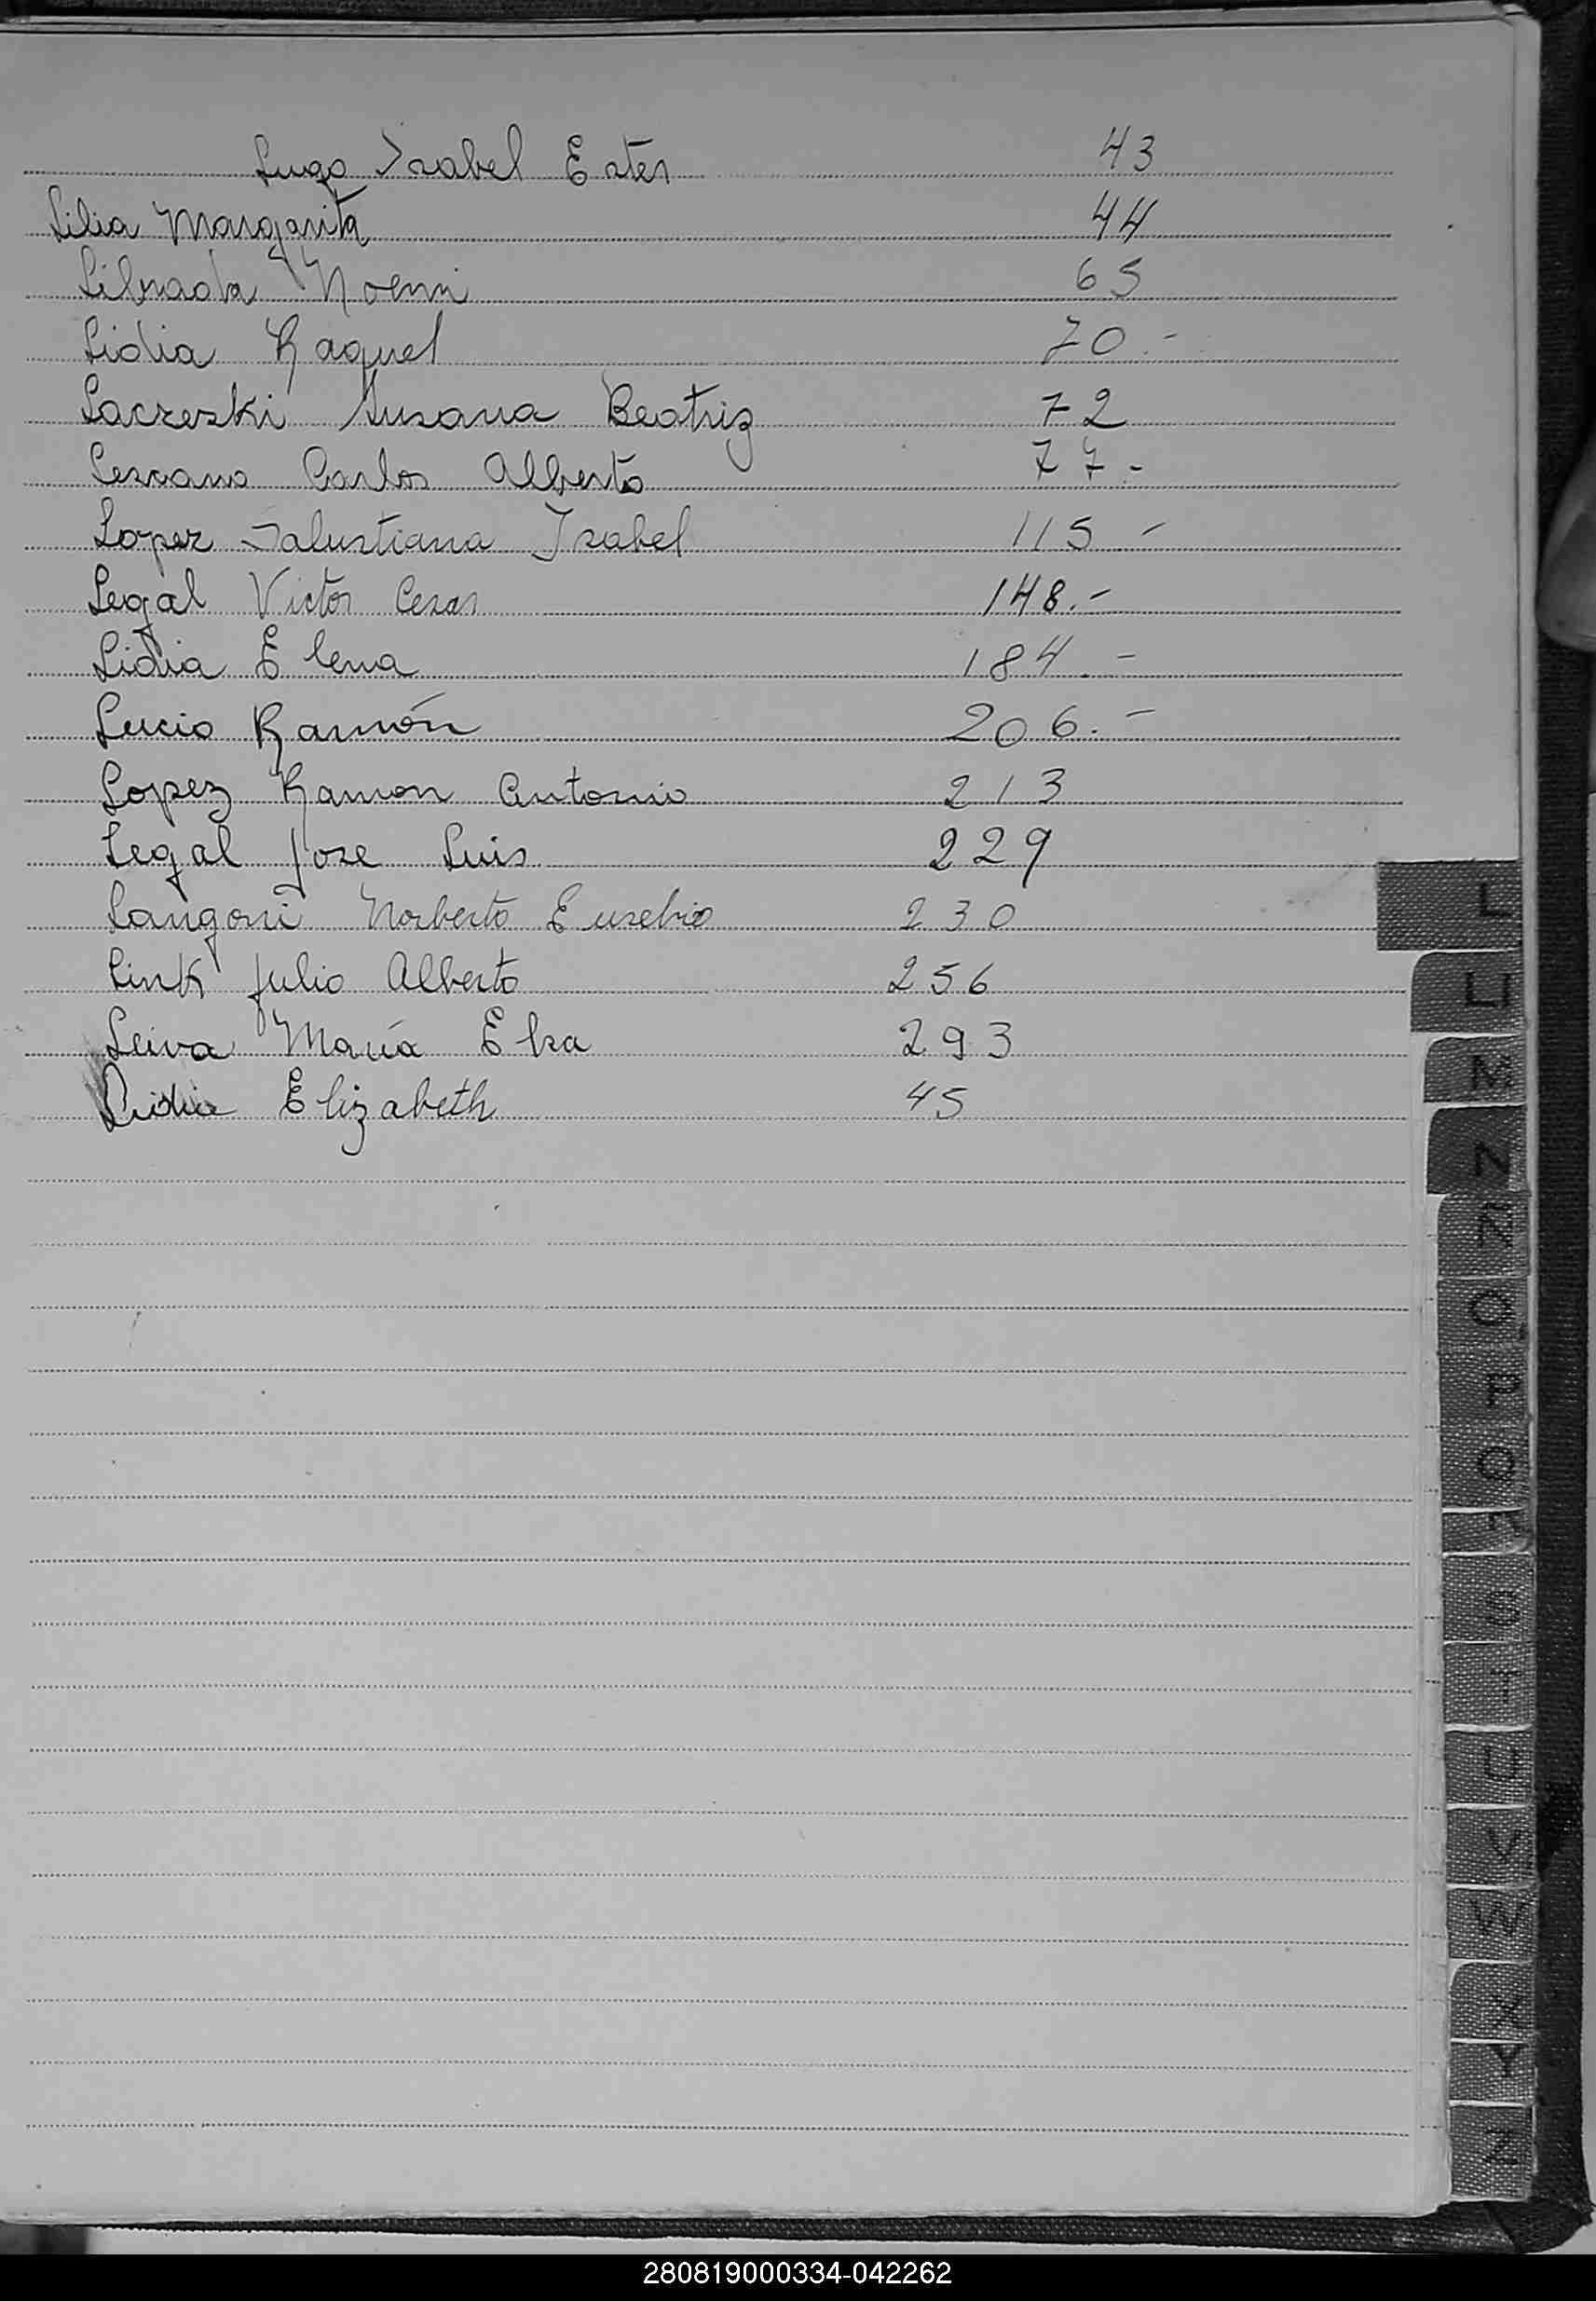 Lugo Isabel Ester 43
Lilia Margarita 44
Librada Noemi 65
Lidia Raquel 70.-
Laczeski Susana Beatriz 72
Lescano Carlos Alberto 77.-
Lopez Salustiana Isabel 115 -
Legal Victor Cesar 148.-
Lidia Elena 184.-
Lucio Ramón 206.-
Lopez Ramon Antonio 213
Legal Jose Luis 229
Langoni Norberto Eusebio 230
Link Julio Alberto 256
Leiva María Elsa 293
Lidia Elizabeth 45
L
LL
M
N
Ñ
O
P
Q
R
S
T
U
V
W
X
Y
Z
280819000334-042262